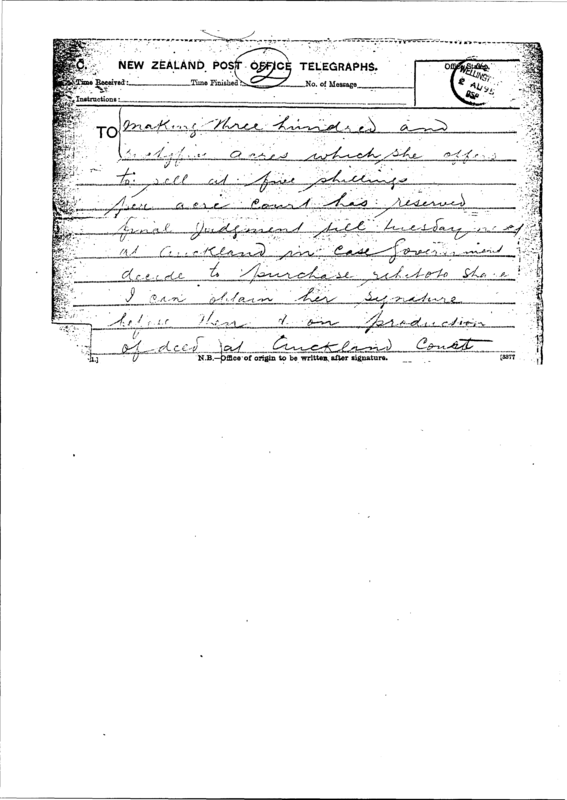 NEW ZEALAND POST OFFICE TELEGRAPHS.
2
Time Received: Time Finished: No. of Message
WELLINGT
2 AU 95
Instructions:
TO making three hundred and
acres which she offers
to sell at five shillings
per acre court has reserved
final judgment till tuesday next
at Auckland in case Government
decide to purchase
I can obtain her signature
before then & on production
of deed at Auckland Court
N.B.—Office of origin to be written after signature.